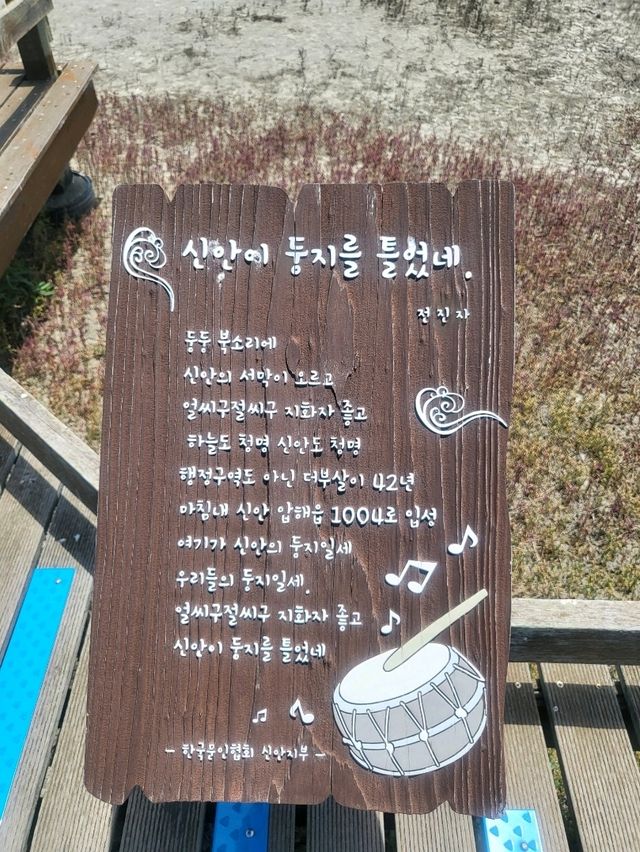 신안이 둥지를 틀었네.
전진자
둥둥 북소리에
신안의 서막이 오르고
얼씨구절씨구 지화자 좋고
하늘도 청명 신안도 청명
행정구역도 아닌 더부살이 42년
마침내 신안 압해읍 1004로 입성
여기가 신안의 둥지일세
우리들의 둥지일세.
얼씨구절씨구 지화자 좋고
신안이 둥지를 틀었네
- 한국문인협회 신안지부 -